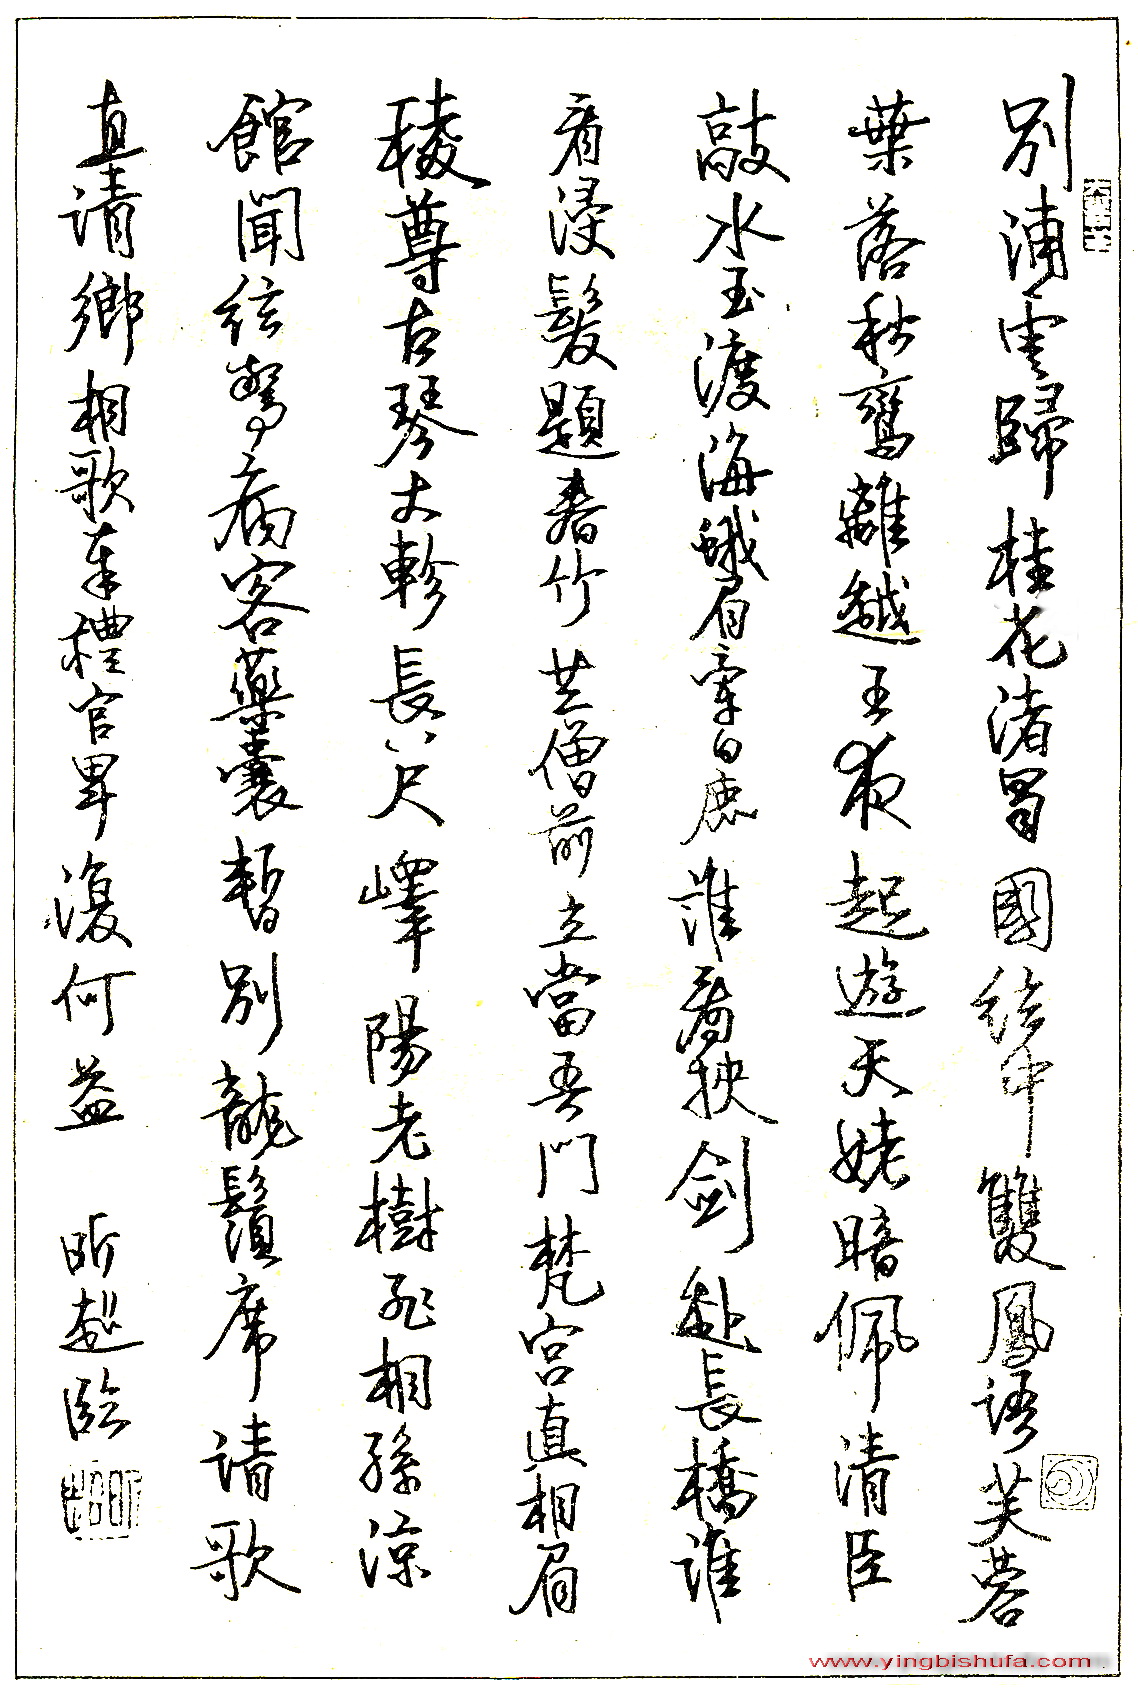 別浦雲歸桂花渚蜀國絃中雙鳳語芙蓉
葉落秋鸞離越王夜起遊天姥暗佩清臣
敲水玉渡海蛾眉牽白鹿誰看挾劍赴長橋誰
看浸髮題春竹竺僧前立當吾門梵宮真相眉
稜尊古琴大軫長八尺嶧陽老樹非桐孫涼
館聞絃驚病客藥囊暫別龍鬚席請歌
直請卿相歌奉禮官卑復何益 昕超臨
www.yingbishufa.com